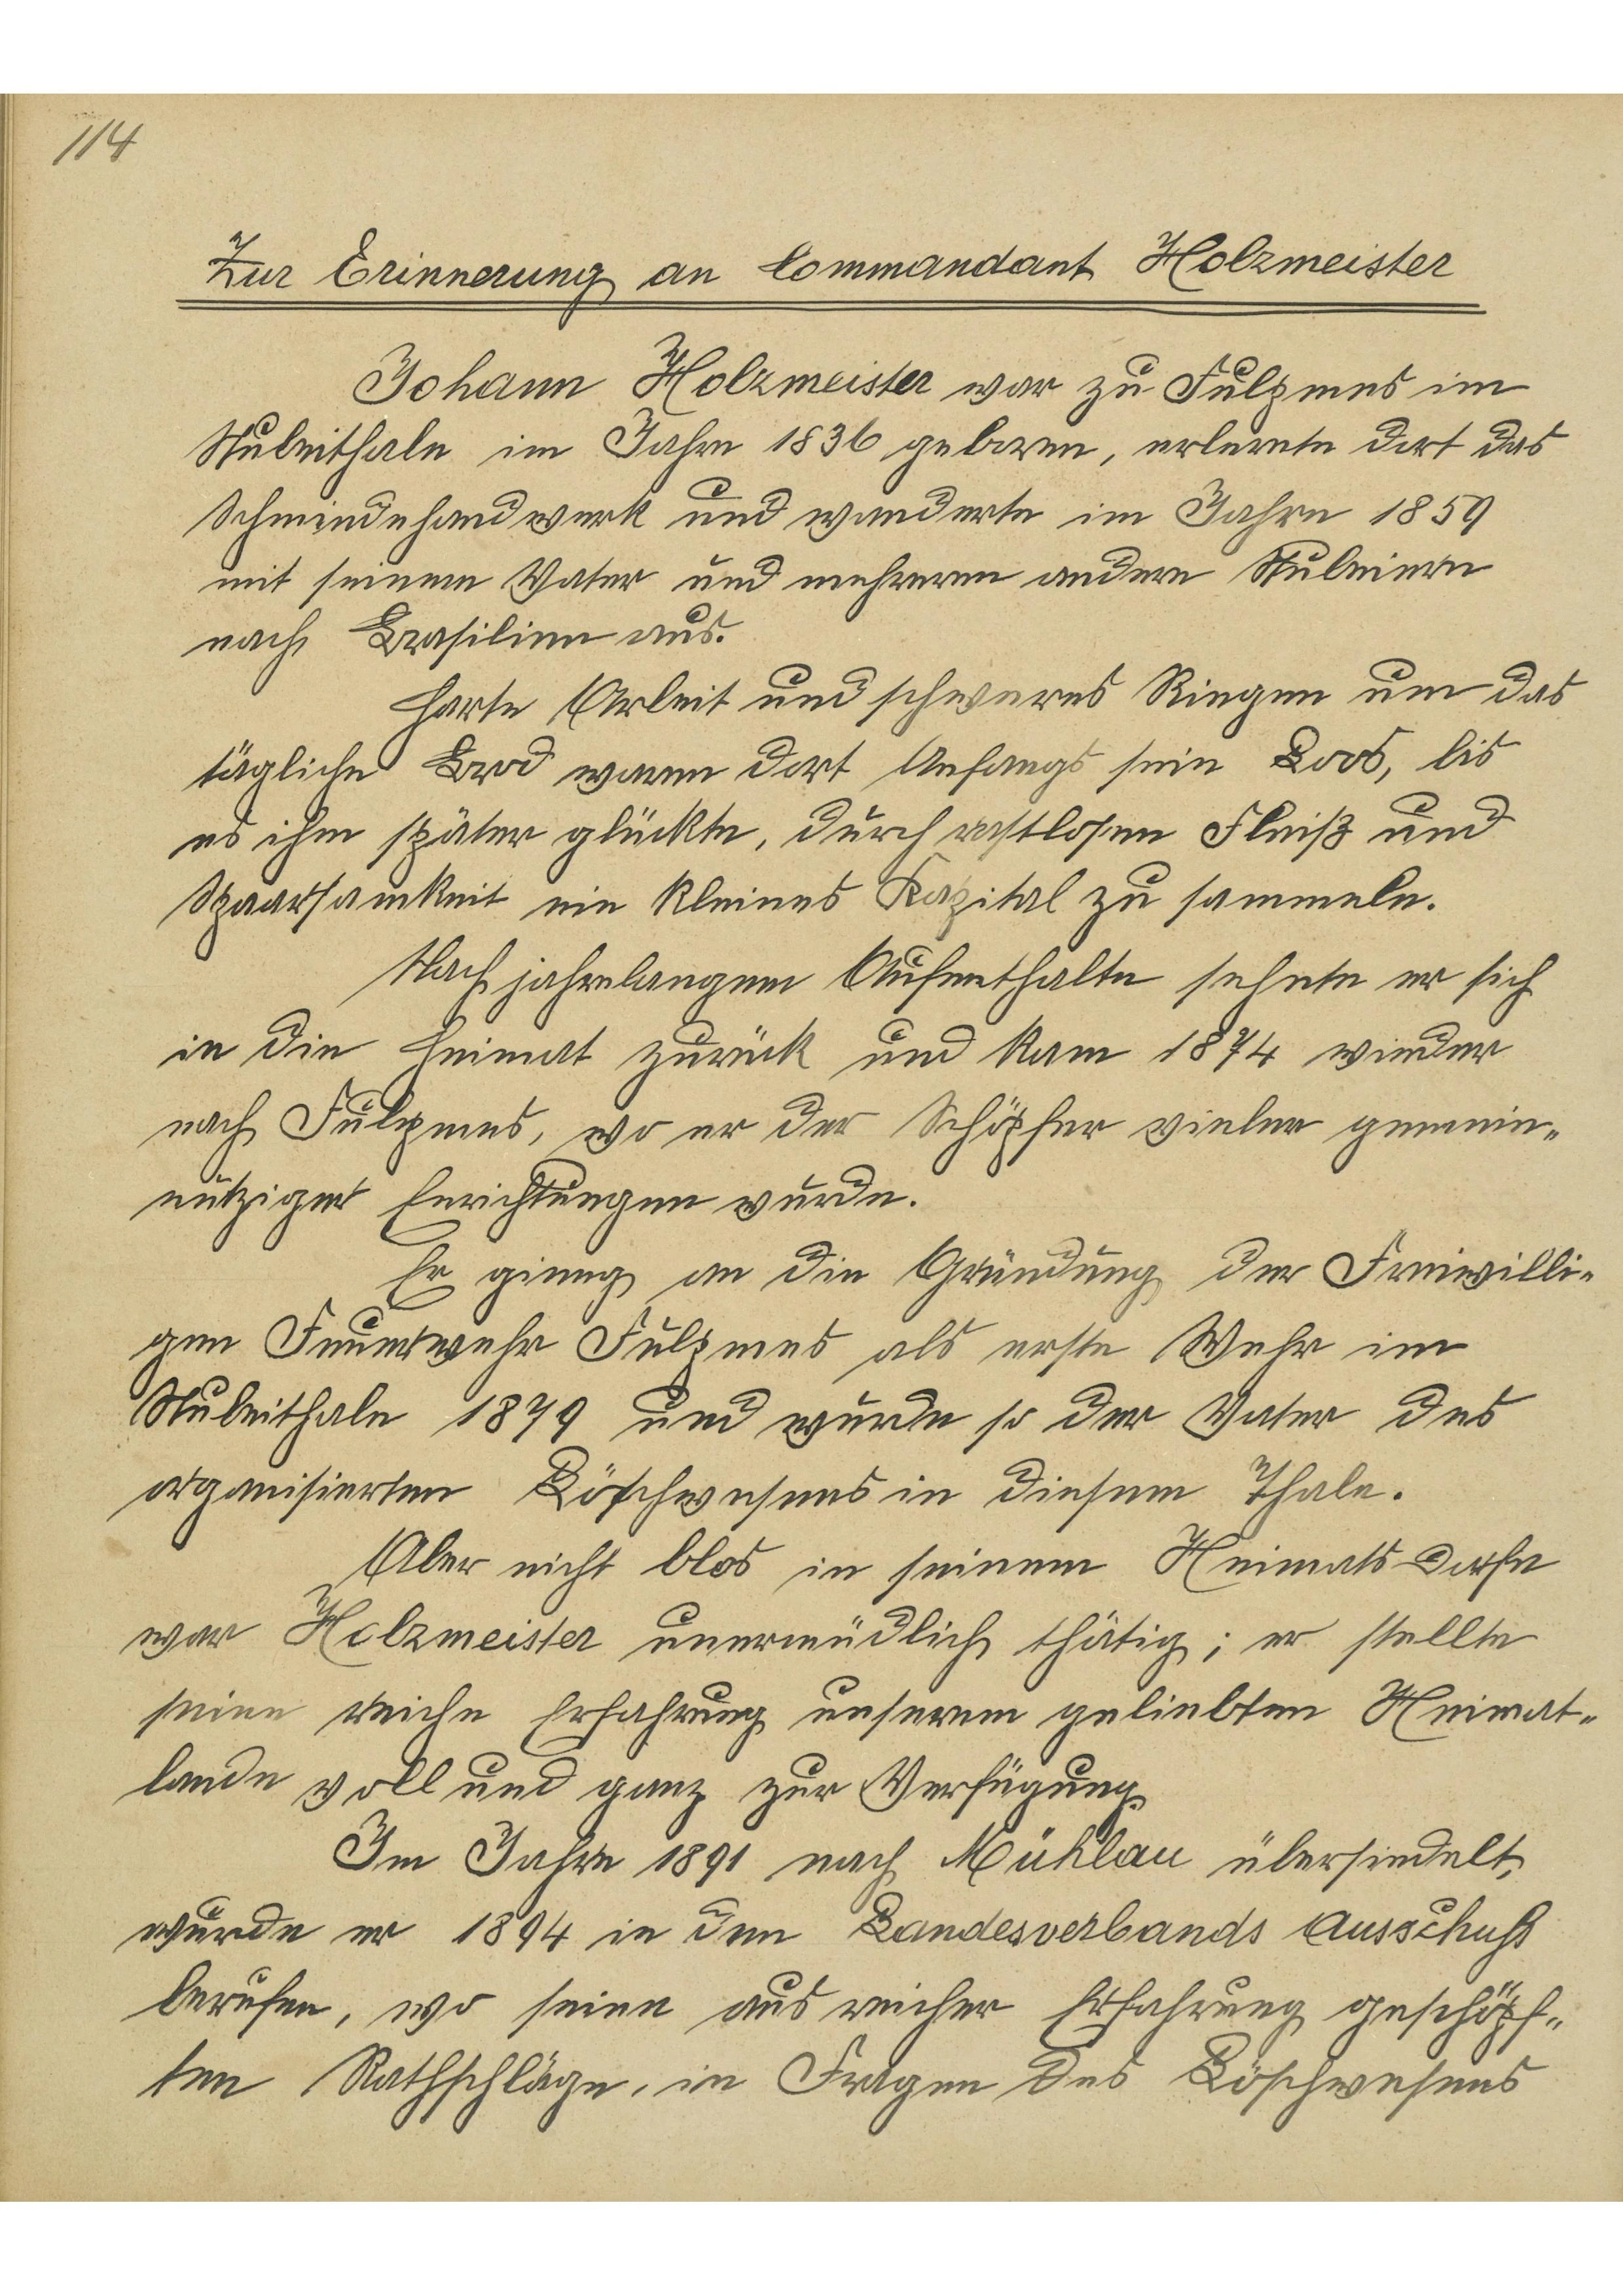 114
Zur Erinnerung an Commandant Holzmeister
Johann Holzmeister war zu Fulpmes im
Stubeithale im Jahre 1836 geboren, erlernte dort das
Schmiedehandwerk und wanderte im Jahre 1859
mit seinem Vater und mehreren andern Stubeiern
nach Brasilien aus.
Harte Arbeit und schweres Ringen um das
tägliche Brod waren dort Anfangs sein Loos, bis
es ihm später glückte, durch rastlosen Fleiß und
Spaarsamkeit ein kleines Kapital zu sammeln.
Nach jahrelangem Aufenthalte sehnte er sich
in die Heimat zurück und kam 1874 wieder
nach Fulpmes, wo er der Schöpfer vieler gemein-
nütziger Enrichtungen wurde.
Er gieng an die Gründung der Freiwilli-
gen Feuerwehr Fulpmes als erste Wehr im
Stubeithale 1879 und wurde so der Vater des
organisierten Löschwesens in diesem Thale.
Aber nicht blos in seinem Heimatsdorfe
war Holzmeister unermüdlich thätig; er stellte
seine reiche Erfahrung unserem geliebten Heimat-
lande voll und ganz zur Verfügung.
Im Jahre 1891 nach Mühlau übersiedelt,
wurde er 1894 in den Landesverbands Ausschuß
berufen, wo seine aus reicher Erfahrung geschöpf-
ten Rathschläge, in Fragen des Löschwesens